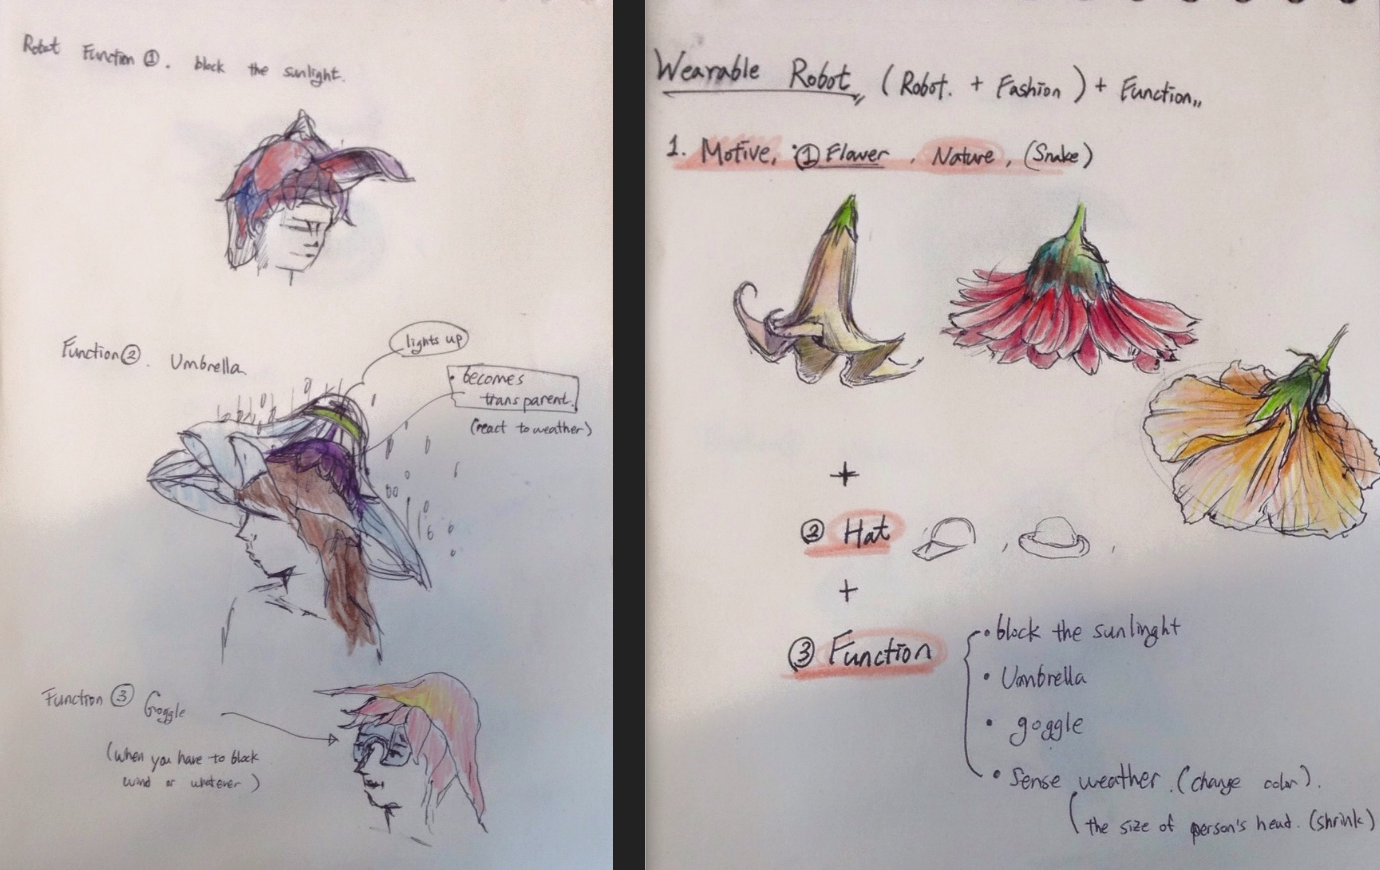 Robot Function ①. block the sunlight.
Function ②. Umbrella
lights up
• becomes
transparent.
(react to weather)
Function ③ Goggle
(When you have to block
wind or whatever)
Wearable Robot (Robot. + Fashion) + Function,,
1. Motive, ① Flower, Nature, (Snake)
+
② Hat , ,
+
③ Function
• block the sunlinght
• Umbrella
• goggle
• Sense weather. (change color).
the size of person's head. (shrink)